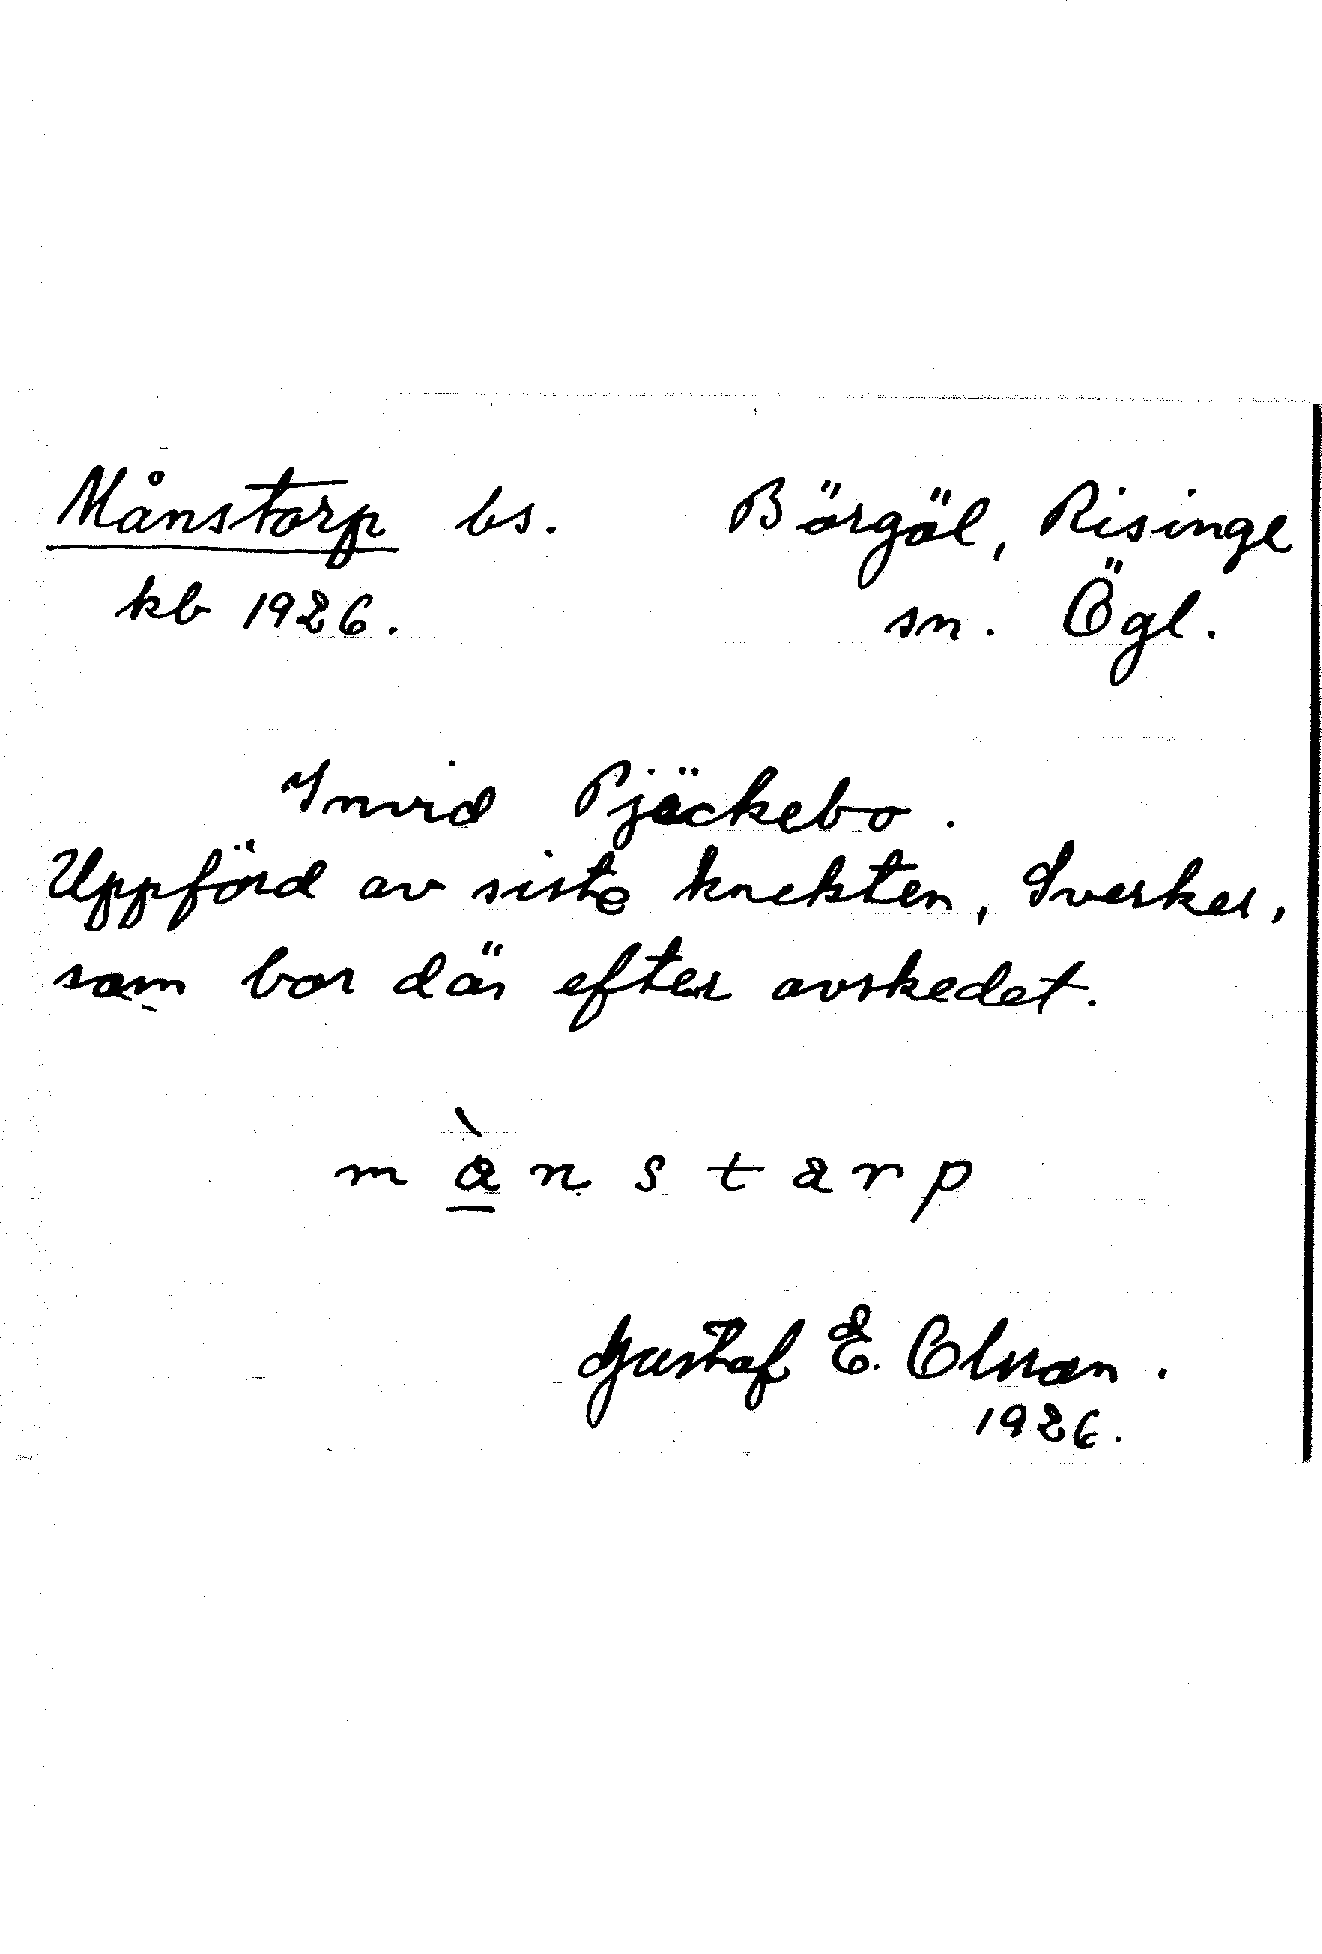 Månstorp bs. Börgöl, Risinge
kb 1926. sn. Ögl.
Invid Pjäckebo.
Uppförd av siste knekten, Sverker,
som bor där efter avskedet.
mànstarp
Gustaf E. Olsson.
1926.